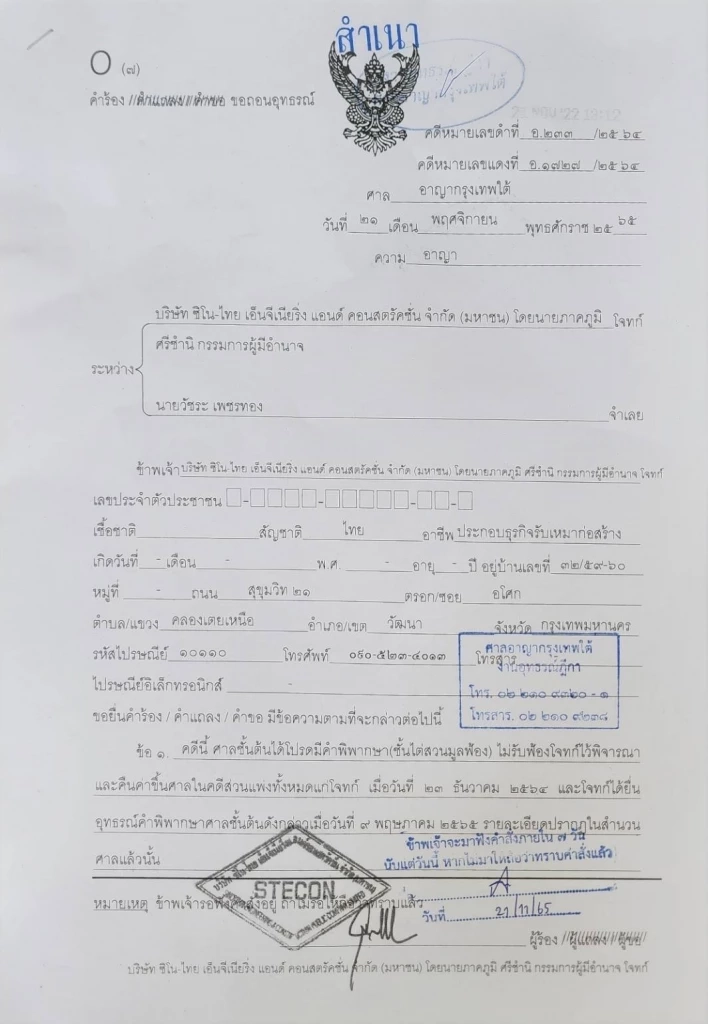 สำเนา
O (๗)
คำร้อง // คำแถลง / คำขอ ขอถอนอุทธรณ์
คดีหมายเลขดำที่ อ.๒๓๓ /๒๕๖๔
คดีหมายเลขแดงที่ อ.๑๗๒๗ /๒๕๖๔
ศาล อาญากรุงเทพใต้
วันที่ ๒๑ เดือน พฤศจิกายน พุทธศักราช ๒๕ ๖๕
ความ อาญา
บริษัท ซิโน-ไทย เอ็นจีเนียริ่ง แอนด์ คอนสตรัคชั่น จำกัด (มหาชน) โดยนายภาคภูมิ โจทก์
ศรีชำนิ กรรมการผู้มีอำนาจ
ระหว่าง
นายวัชระ เพชรทอง จำเลย
ข้าพเจ้า บริษัท ซิโน ไทย เอ็นจีเนียริ่ง แอนด์ คอนสตรัคชั่น จำกัด (มหาชน) โดยนายภาคภูมิ ศรีชำนิ กรรมการผู้มีอำนาจ โจทก์
เลขประจำตัวประชาชน
เชื้อชาติ สัญชาติ ไทย อาชีพ ประกอบธุรกิจรับเหมาก่อสร้าง
เกิดวันที่ - เดือน - พ.ศ. - อายุ - ปี อยู่บ้านเลขที่ ๓๒/๕๙-๖๐
หมู่ที่ - ถนน สุขุมวิท ๒๑ ตรอก/ซอย อโศก
ตำบล/แขวง คลองเตยเหนือ อำเภอ/เขต วัฒนา จังหวัด กรุงเทพมหานคร
รหัสไปรษณีย์ ๑๐๑๑๐ โทรศัพท์ ๐๙๐-๕๒๓-๔๐๑๓ โทรสาร
ศาลอาญากรุงเทพใต้
งานอุทธรณ์ฎีกา
โทร. ๐๒ ๒๑๐ ๙๓๒๐ - ๑
โทรสาร. ๐๒ ๒๑๐ ๙๒๓๘
ไปรษณีย์อิเล็กทรอนิกส์ -
ขอยื่นคำร้อง / คำแถลง / คำขอ มีข้อความตามที่จะกล่าวต่อไปนี้
ข้อ ๑. คดีนี้ ศาลชั้นต้นได้โปรดมีคำพิพากษา(ชั้นไต่สวนมูลฟ้อง) ไม่รับฟ้องโจทก์ไว้พิจารณา
และคืนค่าขึ้นศาลในคดีส่วนแพ่งทั้งหมดแก่โจทก์ เมื่อวันที่ ๒๓ ธันวาคม ๒๕๖๔ และโจทก์ได้ยื่น
อุทธรณ์คำพิพากษาศาลชั้นต้นดังกล่าวเมื่อวันที่ ๙ พฤษภาคม ๒๕๖๕ รายละเอียดปรากฏในสำนวน
ศาลแล้วนั้น
ข้าพเจ้าจะมาฟังคำสั่งภายใน ๗ วัน
นับแต่วันนี้ หากไม่มาให้ถือว่าทราบคำสั่งแล้ว
STECON
หมายเหตุ ข้าพเจ้ารอฟังคำสั่งอยู่ ถ้าไม่รอให้ถือว่าทราบแล้ว
วันที่ 21/11/65
ผู้ร้อง // ผู้แถลง / ผู้ขอ
บริษัท ซิโน-ไทย เอ็นจีเนียริ่ง แอนด์ คอนสตรัคชั่น จำกัด (มหาชน) โดยนายภาคภูมิ ศรีชำนิ กรรมการผู้มีอำนาจ โจทก์